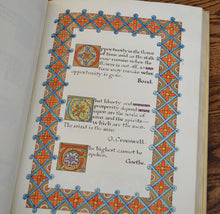 Opportunity is the flower
of time and as the stalk
may remain when the
flower is cut off, so
time may remain when
opportunity is gone.
Bond.
What liberty and
prosperity depend
upon are the souls of
men and the spirits—
which are the men.
The mind is the man.
O. Cromwell.
The highest cannot be
spoken.
Goethe.